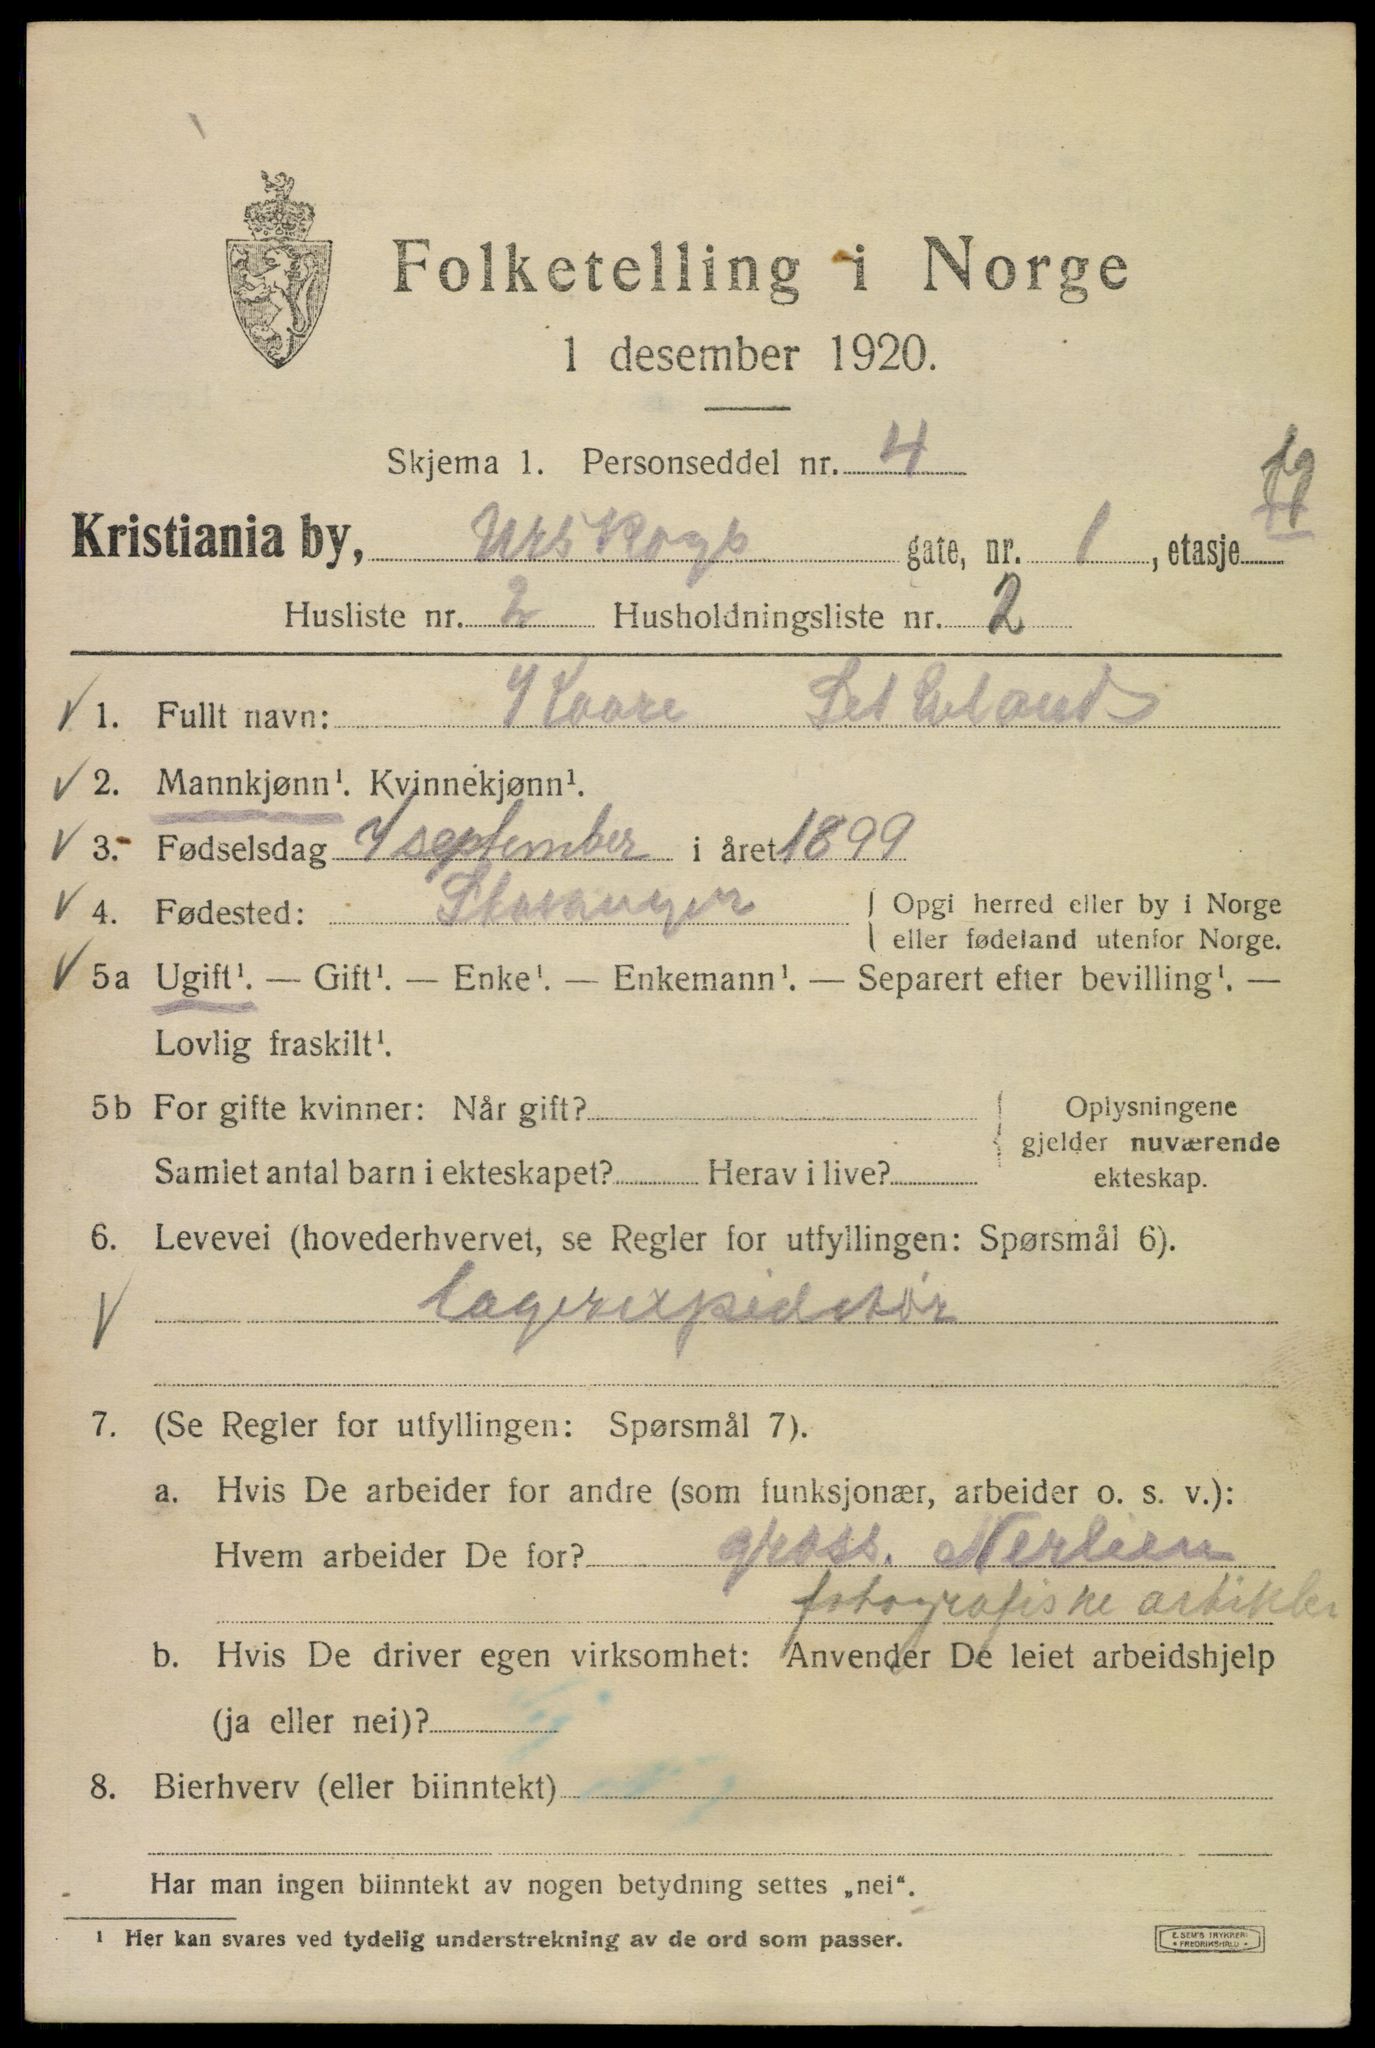 Folketelling i Norge
1 desember 1920.
Skjema 1. Personseddel nr. 4
Kristiania by, Urskogs gate, nr. 1, etasje
Husliste nr. 2 Husholdningsliste nr. 2
1. Fullt navn: Kaare
2. Mannkjønn¹. Kvinnekjønn¹.
3. Fødselsdag 7 september i året 1899
4. Fødested: Stavanger { Opgi herred eller by i Norge
eller fødeland utenfor Norge.
5a Ugift¹. — Gift¹. — Enke¹. — Enkemann¹. — Separert efter bevilling¹. —
Lovlig fraskilt¹.
5b For gifte kvinner: Når gift? { Oplysningene
gjelder nuværende
Samlet antal barn i ekteskapet? Herav i live? ekteskap.
6. Levevei (hovederhvervet, se Regler for utfyllingen: Spørsmål 6).
Lagerexpiditør
7. (Se Regler for utfyllingen: Spørsmål 7).
a. Hvis De arbeider for andre (som funksjonær, arbeider o. s. v.):
Hvem arbeider De for? gross. Nerlien
fotografiske artikler
b. Hvis De driver egen virksomhet: Anvender De leiet arbeidshjelp
(ja eller nei)?
8. Bierhverv (eller biinntekt)
Har man ingen biinntekt av nogen betydning settes „nei".
¹ Her kan svares ved tydelig understrekning av de ord som passer.
E. SEM'S TRYKKERI
• FREDRIKSHALD •